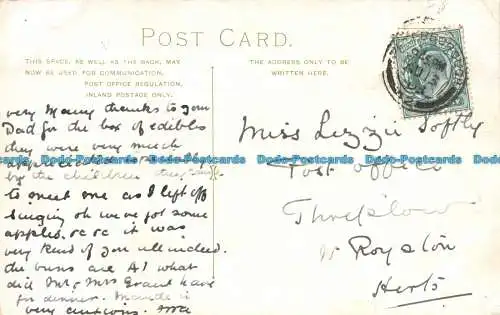 POST CARD.
THIS SPACE, AS WELL AS THE BACK, MAY
NOW BE USED FOR COMMUNICATION.
POST OFFICE REGULATION,
INLAND POSTAGE ONLY.
THE ADDRESS ONLY TO BE
WRITTEN HERE.
very Many thanks to your
Dad for the box of edibles
they were very much
by the children they
to meet me as I left off
Singing oh we've got some
apples. &c &c it was
very Kind of you all indeed.
the buns are A1 what
did Mr & Mrs Grant have
for dinner. Maude is
very anxious.
Miss Lizzie Softly
Post Office
Thriplow
Nr Royston
Herts
Dodo-Postcards Dodo-Postcards Dodo-Postcards Dodo-Postcards Dodo-Postcards